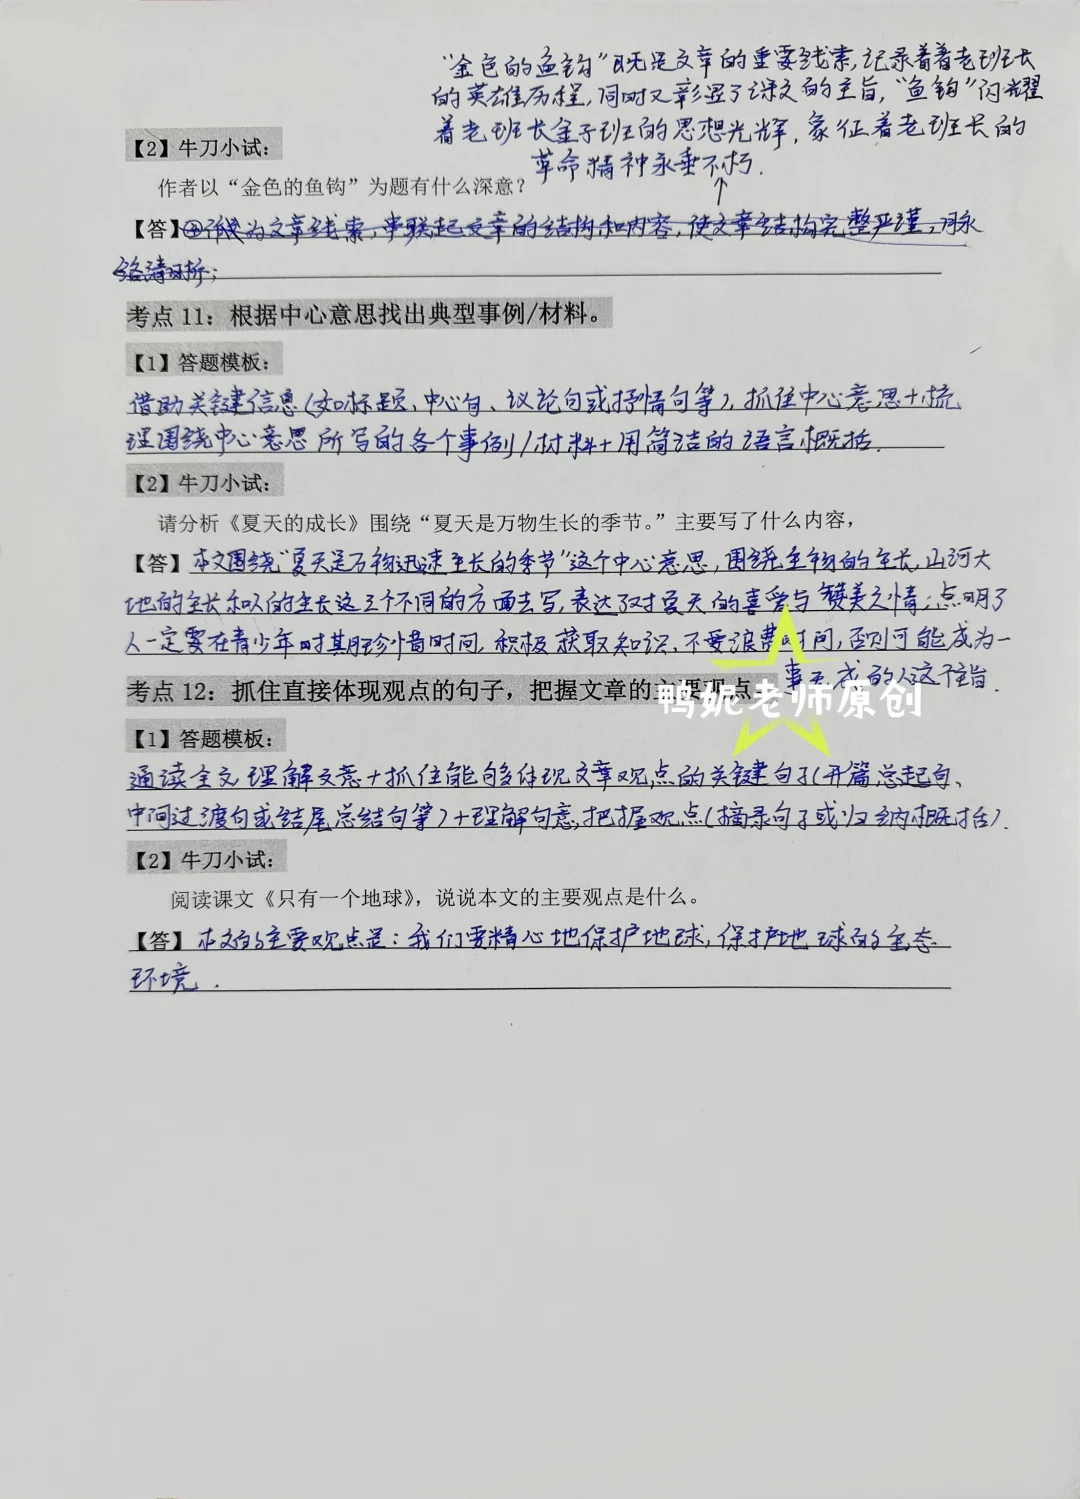 “金色的鱼钩”既是文章的重要线索,记录着着老班长
的英雄历程,同时又彰显了课文的主旨,“鱼钩”闪耀
着老班长金子班的思想光辉,象征着老班长的
革命精神永垂不朽.
【2】牛刀小试:
作者以“金色的鱼钩”为题有什么深意?
【答】为文章线索,串联起文章的结构和内容,使文章结构完整严谨,脉
络清晰;
考点 11:根据中心意思找出典型事例/材料。
【1】答题模板:
借助关键信息(如标题、中心句、议论句或抒情句等),抓住中心意思+梳
理围绕中心意思所写的各个事例/材料+用简洁的语言概括.
【2】牛刀小试:
请分析《夏天的成长》围绕“夏天是万物生长的季节。”主要写了什么内容,
【答】本文围绕“夏天是万物迅速生长的季节”这个中心意思,围绕生物的生长,山河大
地的生长和人的生长这三个不同的方面去写,表达了对夏天的喜爱与赞美之情;点明了
人一定要在青少年时其月珍惜时间,积极获取知识,不要浪费时间,否则可能成为一
事无成的人这个主旨.
考点 12:抓住直接体现观点的句子,把握文章的主要观点
鸭妮老师原创
【1】答题模板:
通读全文理解文意+抓住能够体现文章观点的关键句子(开篇总起句、
中间过渡句或结尾总结句等)+理解句意,把握观点(摘录句子或归纳概括).
【2】牛刀小试:
阅读课文《只有一个地球》,说说本文的主要观点是什么。
【答】本文的主要观点是:我们要精心地保护地球,保护地球的生态
环境.